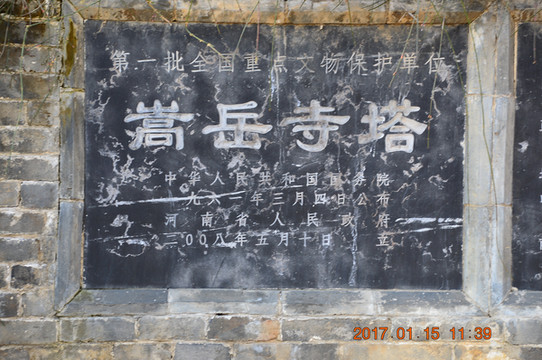 第一批全国重点文物保护单位
嵩岳寺塔
中华人民共和国国务院
一九六一年三月四日公布
河南省人民政府
二〇〇八年五月十日 立
2017.01.15 11:39